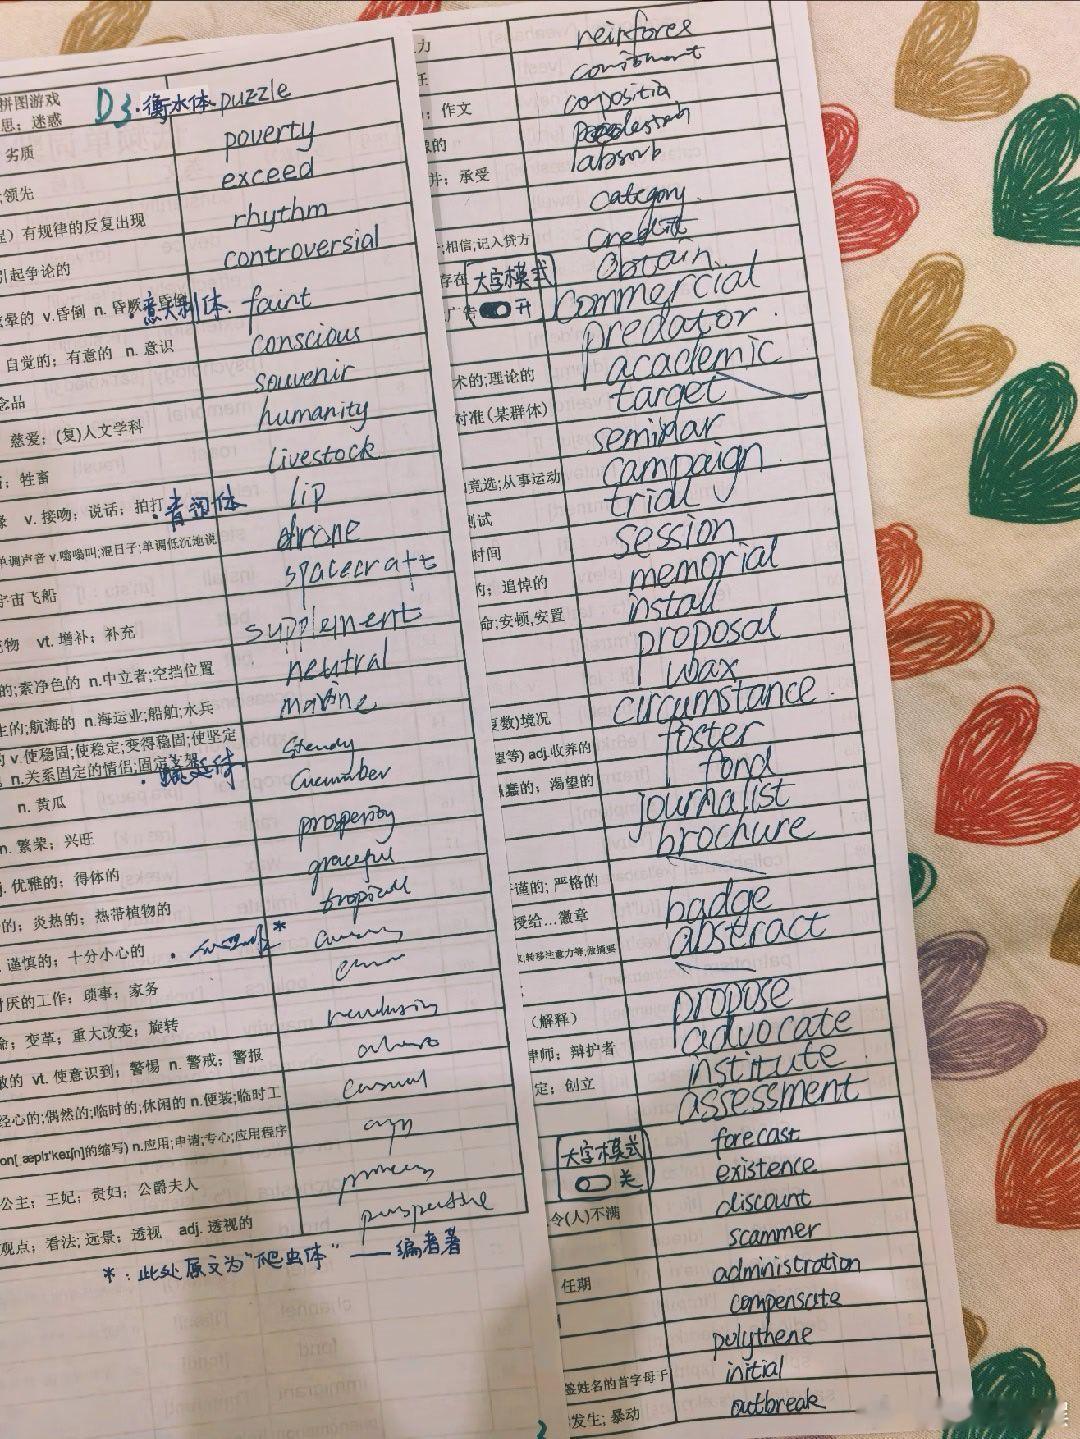 拼图游戏
思；迷惑
D3.衡水体 puzzle
劣质 poverty
领先 exceed
有规律的反复出现 rhythm
引起争论的 controversial
晕的 v.昏倒 n.昏厥 ·意大利体 faint
自觉的；有意的 n. 意识 conscious
念品 souvenir
慈爱；(复)人文学科 humanity
牲畜 livestock
v.接吻；说话；拍打 lip
单调声音 v.嗡嗡叫;混日子;单调低沉地说 drone
宇宙飞船 spacecraft
充物 vt. 增补；补充 supplement
的;素净色的 n.中立者;空挡位置 neutral
生的;航海的 n.海运业;船舶;水兵 marine
v.使稳固;使稳定;变得稳固;使坚定
n.关系固定的情侣;固定支架 steady
n. 黄瓜 cucumber
n. 繁荣；兴旺 prosperity
j. 优雅的；得体的 graceful
的；炎热的；热带植物的 tropical
谨慎的；十分小心的 *
讨厌的工作；琐事；家务
命；变革；重大改变；旋转
敏的 vt. 使意识到；警惕 n. 警戒；警报
经心的;偶然的;临时的,休闲的 n.便装;临时工 casual
的缩写) n.应用;申请;专心;应用程序
公主；王妃；贵妇；公爵夫人
观点；看法；远景；透视 adj. 透视的 perspective
*：此处原文为“爬虫体” ——编者著
力 reinforce
任
作文
的
并；承受 absorb
category
;相信;记入贷方 credit
存在 obtain
大字模式
开
广告 commercial
predator
术的;理论的 academic
对准(某群体) target
seminar
竞选;从事运动 campaign
测试 trial
时间 session
的；追悼的 memorial
命;安顿,安置 install
proposal
wax
复数)境况 circumstance
望等) adj.收养的 foster
愚蠢的；渴望的 fond
journalist
brochure
严谨的；严格的
授给…徽章 badge
转移注意力等;做摘要 abstract
（解释） propose
律师；辩护者 advocate
定；创立 institute
assessment
forecast
大字模式
关
existence
令(人)不满 discount
scammer
任期 administration
compensate
polythene
签姓名的首字母于 initial
发生；暴动 outbreak